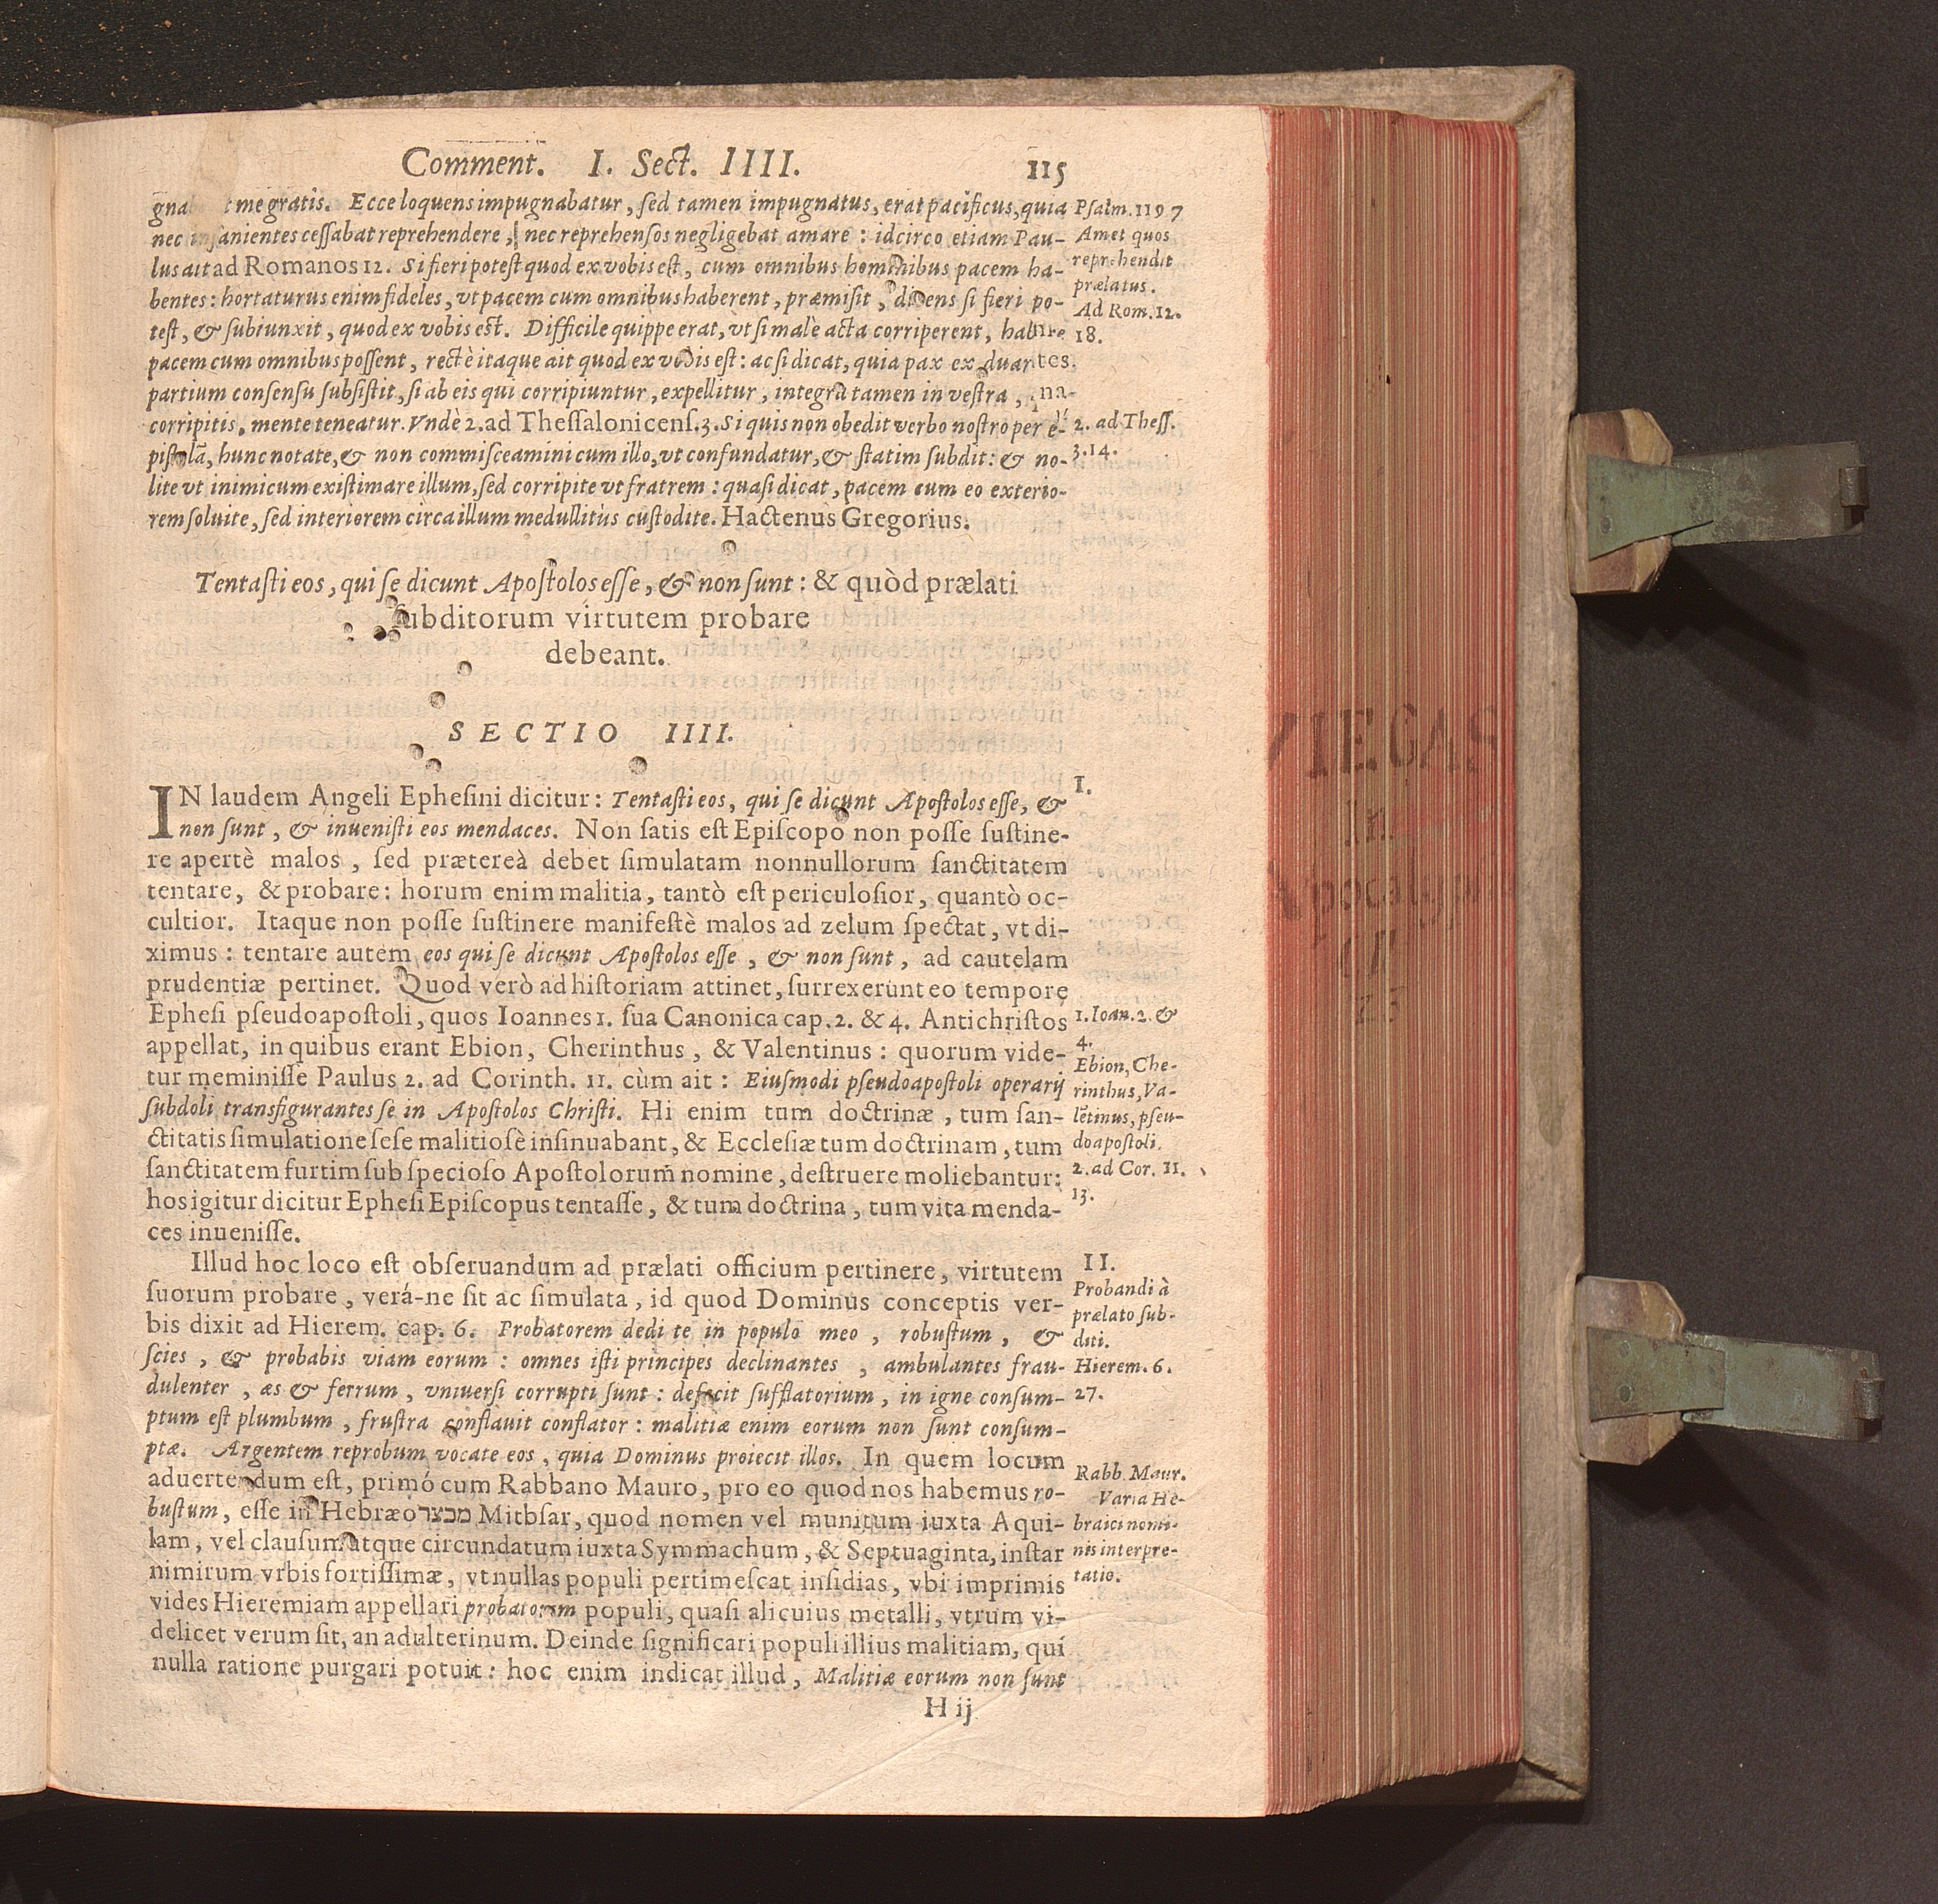 Comment. I. Sect. IIII. 115
gna t me gratis. Ecce loquens impugnabatur, sed tamen impugnatus, erat pacificus, quia
nec insanientes cessabat reprehendere, nec reprehensos negligebat amare : idcirco etiam Pau-
lus ait ad Romanos 12. Si fieri potest quod ex vobis est, cum omnibus hominibus pacem ha-
bentes : hortaturus enim fideles, vt pacem cum omnibus haberent, præmisit, dicens si fieri po-
test, & subiunxit, quod ex vobis est. Difficile quippe erat, vt si malè acta corriperent, habere
pacem cum omnibus possent, rectè itaque ait quod ex vobis est : ac si dicat, quia pax ex duar
partium consensu subsistit, si ab eis qui corripiuntur, expellitur, integra tamen in vestra,
corripitis, mente teneatur. Vndè 2. ad Thessalonicens. 3. Si quis non obedit verbo nostro per e-
pistolã, hunc notate, & non commisceamini cum illo, vt confundatur, & statim subdit : & no-
lite vt inimicum existimare illum, sed corripite vt fratrem : quasi dicat, pacem cum eo exterio-
rem soluite, sed interiorem circa illum medullitùs custodite. Hactenus Gregorius.
Psalm. 119 7
Amet quos
reprehendit
prælatus.
Ad Rom. 12.
18.
2. ad Thess.
3. 14.
Tentasti eos, qui se dicunt Apostolos esse, & non sunt : & quòd prælati
subditorum virtutem probare
debeant.
SECTIO IIII.
IN laudem Angeli Ephesini dicitur : Tentasti eos, qui se dicunt Apostolos esse, &
non sunt, & inuenisti eos mendaces. Non satis est Episcopo non posse sustine-
re apertè malos, sed prætereà debet simulatam nonnullorum sanctitatem
tentare, & probare : horum enim malitia, tantò est periculosior, quantò oc-
cultior. Itaque non posse sustinere manifestè malos ad zelum spectat, vt di-
ximus : tentare autem eos qui se dicunt Apostolos esse, & non sunt, ad cautelam
prudentiæ pertinet. Quod verò ad historiam attinet, surrexerunt eo tempore
Ephesi pseudoapostoli, quos Ioannes 1. sua Canonica cap. 2. & 4. Antichristos
appellat, in quibus erant Ebion, Cherinthus, & Valentinus : quorum vide-
tur meminisse Paulus 2. ad Corinth. 11. cùm ait : Eiusmodi pseudoapostoli operarij
subdoli transfigurantes se in Apostolos Christi. Hi enim tum doctrinæ, tum san-
ctitatis simulatione sese malitiosè insinuabant, & Ecclesiæ tum doctrinam, tum
sanctitatem furtim sub specioso Apostolorum nomine, destruere moliebantur :
hos igitur dicitur Ephesi Episcopus tentasse, & tum doctrina, tum vita menda-
ces inuenisse.
I.
1. Ioan. 2. &
4.
Ebion, Che-
rinthus, Va-
lētinus, pseu-
doapostoli.
2. ad Cor. 11.
13.
Illud hoc loco est obseruandum ad prælati officium pertinere, virtutem
suorum probare, verá-ne sit ac simulata, id quod Dominus conceptis ver-
bis dixit ad Hierem. cap. 6. Probatorem dedi te in populo meo, robustum, &
scies, & probabis viam eorum : omnes isti principes declinantes, ambulantes frau-
dulenter, æs & ferrum, vniuersi corrupti sunt : defecit sufflatorium, in igne consum-
ptum est plumbum, frustra conflauit conflator : malitiæ enim eorum non sunt consum-
ptæ. Argentem reprobum vocate eos, quia Dominus proiecit illos. In quem locum
aduertendum est, primó cum Rabbano Mauro, pro eo quod nos habemus ro-
bustum, esse in Hebræo מבצר Mitbsar, quod nomen vel munitum iuxta Aqui-
lam, vel clausum atque circundatum iuxta Symmachum, & Septuaginta, instar
nimirum vrbis fortissimæ, vt nullas populi pertimescat insidias, vbi imprimis
vides Hieremiam appellari probatorem populi, quasi alicuius metalli, vtrum vi-
delicet verum sit, an adulterinum. Deinde significari populi illius malitiam, qui
nulla ratione purgari potuit : hoc enim indicat illud, Malitiæ eorum non sunt
II.
Probandi à
prælato sub-
diti.
Hierem. 6.
27.
Rabb. Maur.
Varia He-
braici nomi-
nis interpre-
tatio.
H ij
VIEGAS
In
Apocalyp